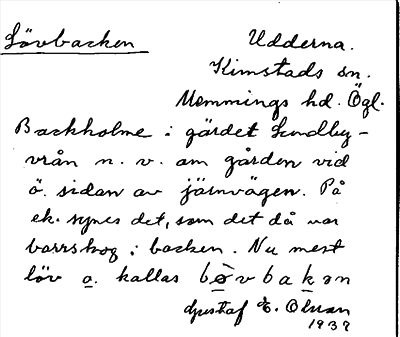 Lövbacken Udderna.
Kimstads sn.
Memmings hd. Ögl.
Backholme i gärdet Lundby-
vrån n. v. om gården vid
ö. sidan av järnvägen. På
ek. synes det, som det då var
barrskog i backen. Nu mest
löv o. kallas
Gustaf E. Olsson
1937